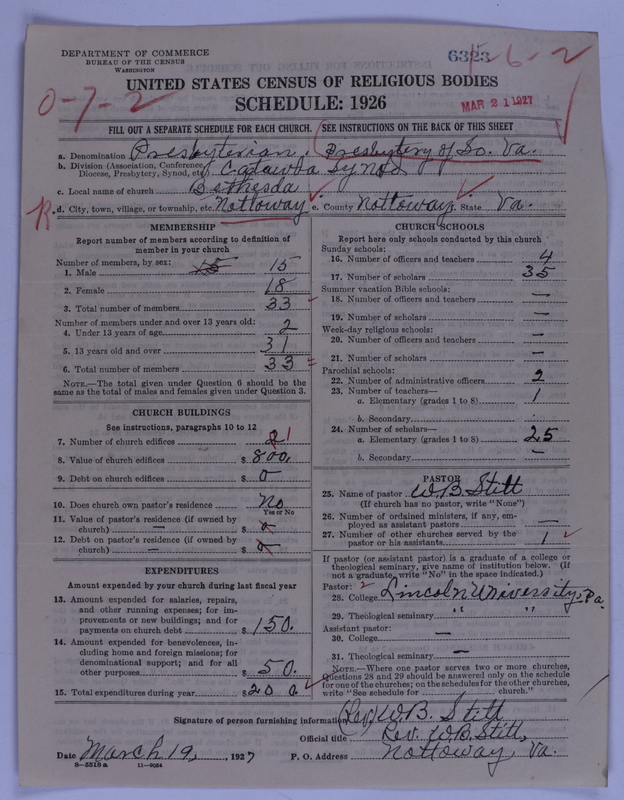 DEPARTMENT OF COMMERCE
BUREAU OF THE CENSUS
WASHINGTON
6323
1-6-2
UNITED STATES CENSUS OF RELIGIOUS BODIES
0-7-2
SCHEDULE: 1926
MAR 21 1927
FILL OUT A SEPARATE SCHEDULE FOR EACH CHURCH. SEE INSTRUCTIONS ON THE BACK OF THIS SHEET
a. Denomination Presbyterian. Presbytery of So. Va.
b. Division (Association, Conference, Diocese, Presbytery, Synod, etc.) Catawba Synod
c. Local name of church Bethesda
d. City, town, village, or township, etc. Nottoway e. County Nottoway f. State Va.
MEMBERSHIP
Report number of members according to definition of
member in your church
Number of members, by sex:
1. Male 15 15
2. Female 18
3. Total number of members 33
Number of members under and over 13 years old:
4. Under 13 years of age 2
5. 13 years old and over 31
6. Total number of members 33
NOTE.—The total given under Question 6 should be the
same as the total of males and females given under Question 3.
CHURCH BUILDINGS
See instructions, paragraphs 10 to 12
7. Number of church edifices 2 1
8. Value of church edifices $ 800.
9. Debt on church edifices $ 0
10. Does church own pastor's residence No
Yes or No
11. Value of pastor's residence (if owned by
church) — $ 0
12. Debt on pastor's residence (if owned by
church) — $ 0
EXPENDITURES
Amount expended by your church during last fiscal year
13. Amount expended for salaries, repairs,
and other running expenses; for im-
provements or new buildings; and for
payments on church debt $ 150.
14. Amount expended for benevolences, in-
cluding home and foreign missions; for
denominational support; and for all
other purposes $ 50.
15. Total expenditures during year $ 200
CHURCH SCHOOLS
Report here only schools conducted by this church
Sunday schools:
16. Number of officers and teachers 4
17. Number of scholars 35
Summer vacation Bible schools:
18. Number of officers and teachers —
19. Number of scholars —
Week-day religious schools:
20. Number of officers and teachers —
21. Number of scholars —
Parochial schools:
22. Number of administrative officers 2
23. Number of teachers—
a. Elementary (grades 1 to 8) 1
b. Secondary
24. Number of scholars—
a. Elementary (grades 1 to 8) 25
b. Secondary —
PASTOR
25. Name of pastor W.B. Stitt
(If church has no pastor, write "None")
26. Number of ordained ministers, if any, em-
ployed as assistant pastors —
27. Number of other churches served by the
pastor or his assistants 1
If pastor (or assistant pastor) is a graduate of a college or
theological seminary, give name of institution below. (If
not a graduate, write "No" in the space indicated.)
Pastor:
28. College Lincoln University, Pa.
29. Theological seminary " "
Assistant pastor:
30. College —
31. Theological seminary —
NOTE.—Where one pastor serves two or more churches,
Questions 28 and 29 should be answered only on the schedule
for one of the churches; on the schedules for the other churches,
write "See schedule for church."
Signature of person furnishing information (Rev) W.B. Stitt
Official title Rev. W.B. Stitt,
Date March 19, 1927 P. O. Address Nottoway, Va.
8-5518 a 11-9084